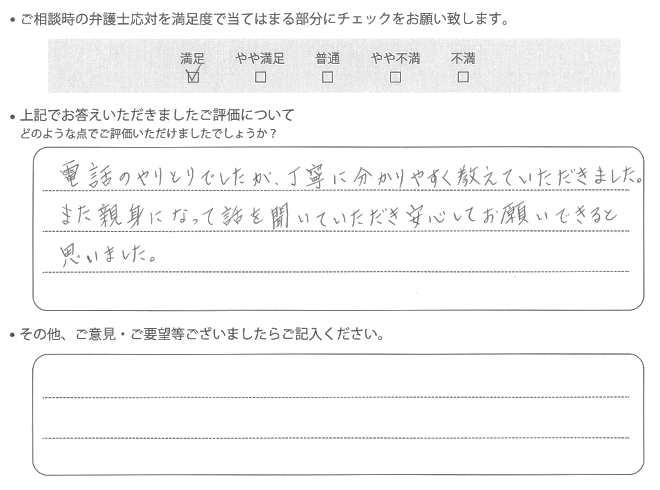 • ご相談時の弁護士応対を満足度で当てはまる部分にチェックをお願い致します。
満足 やや満足 普通 やや不満 不満
☑ □ □ □ □
• 上記でお答えいただきましたご評価について
どのような点でご評価いただけましたでしょうか？
電話のやりとりでしたが、丁寧に分かりやすく教えていただきました。
また親身になって話を聞いていただき安心してお願いできると
思いました。
• その他、ご意見・ご要望等ございましたらご記入ください。